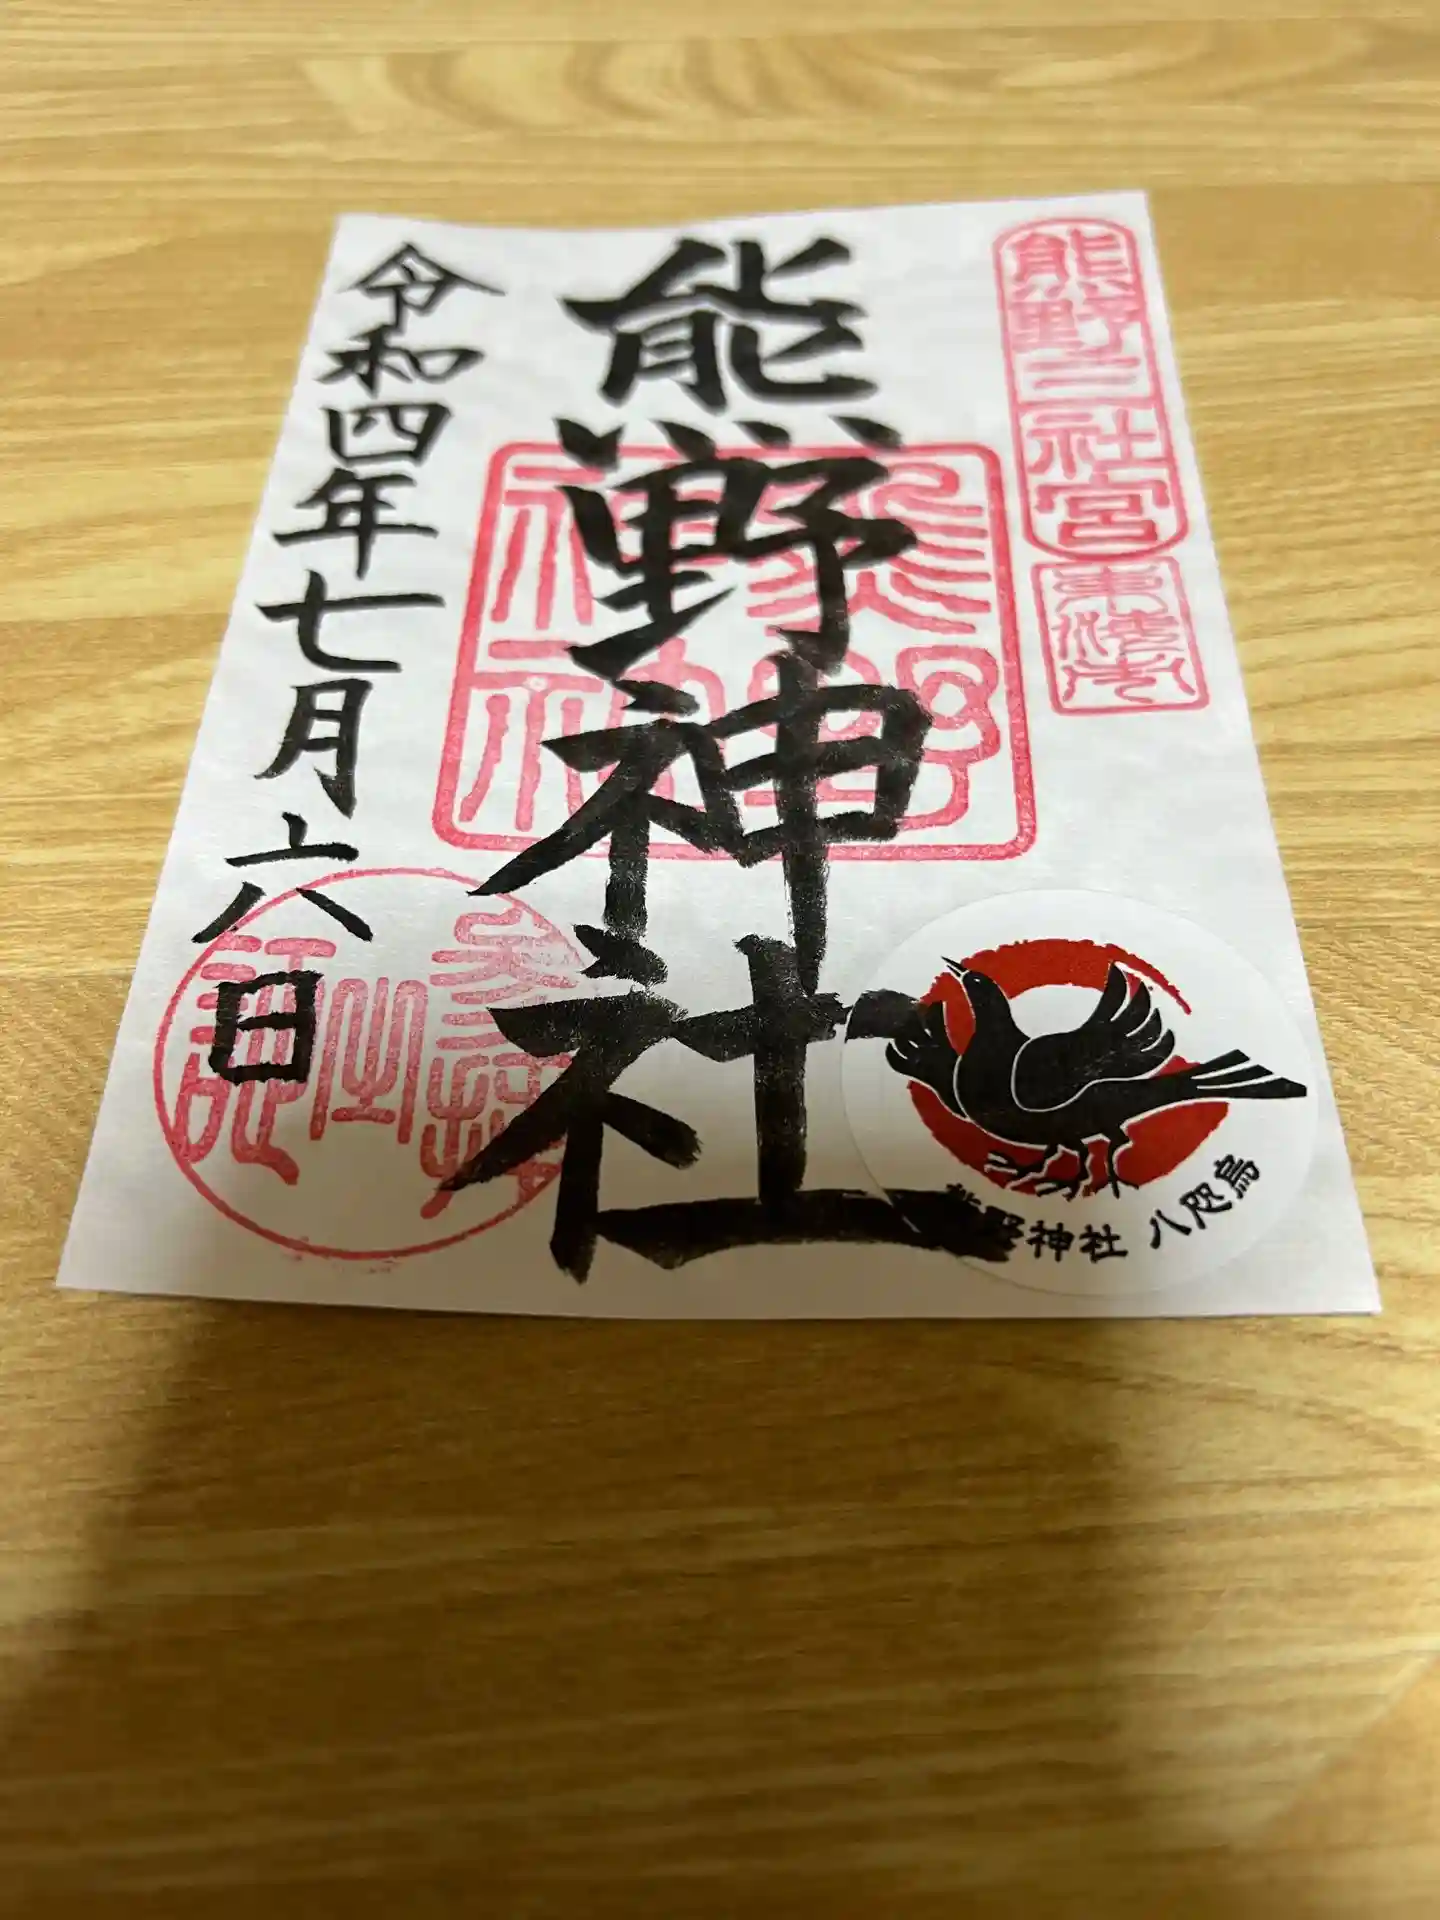 熊野三社宮
熊野神社
熊野
神社
令和四年七月六日
参拝
之
証
熊野神社 八咫烏